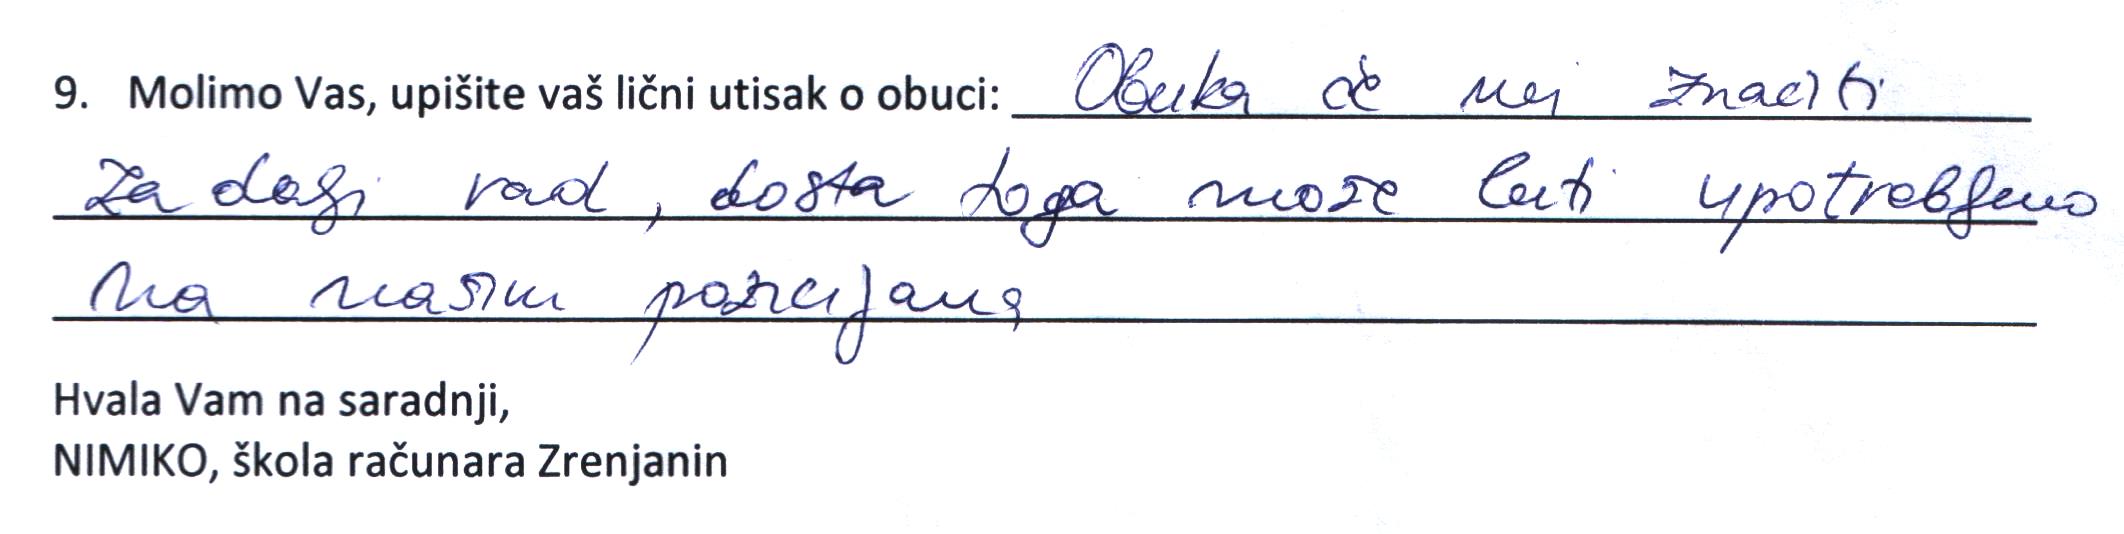 9. Molimo Vas, upišite vaš lični utisak o obuci: Obuka će mi značiti
za dalji rad, dosta toga može biti upotrebljeno
na našim pozicijama
Hvala Vam na saradnji,
NIMIKO, škola računara Zrenjanin